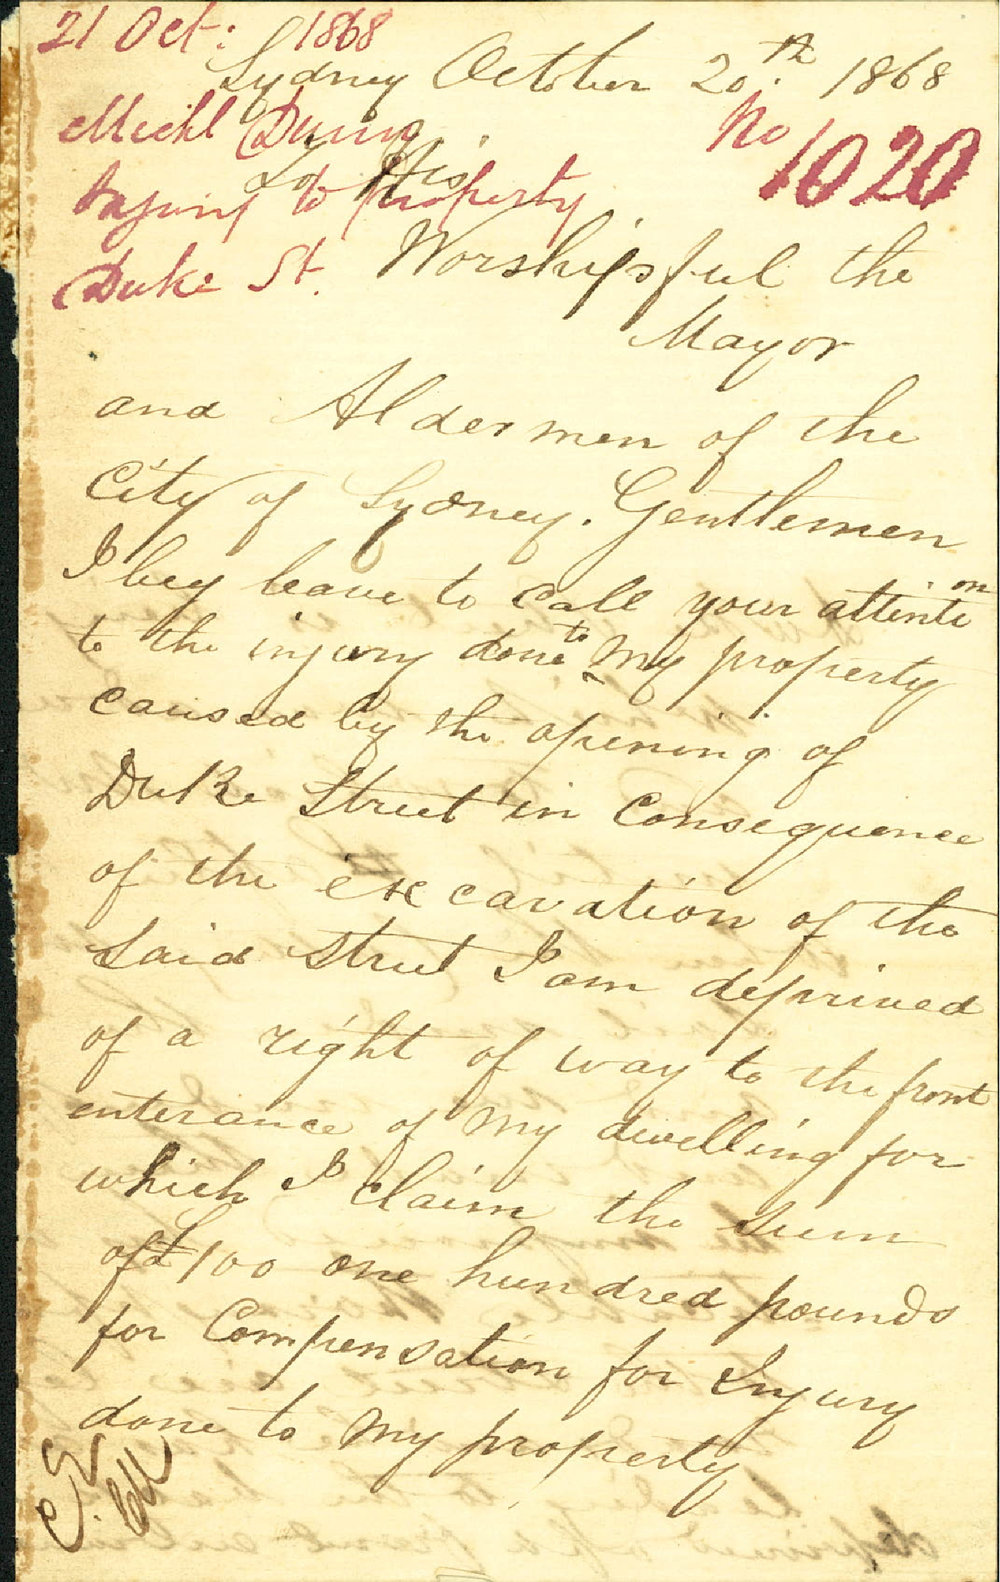 21 Oct: 1868
Sydney October 20th 1868
No 1020
Michl
To His
Injury to property
Duke St.
Worshipsful the
Mayor
and Aldermen of the
City of Sydney. Gentlemen
I beg leave to call your attention
to the injury done to My property
caused by the opening of
Duke Street in Consequence
of the excavation of the
Said Street I am deprived
of a right of way to the front
enterance of My dwelling for
which I claim the sum
of £100 one hundred pounds
for Compensation for Injury
done to My property